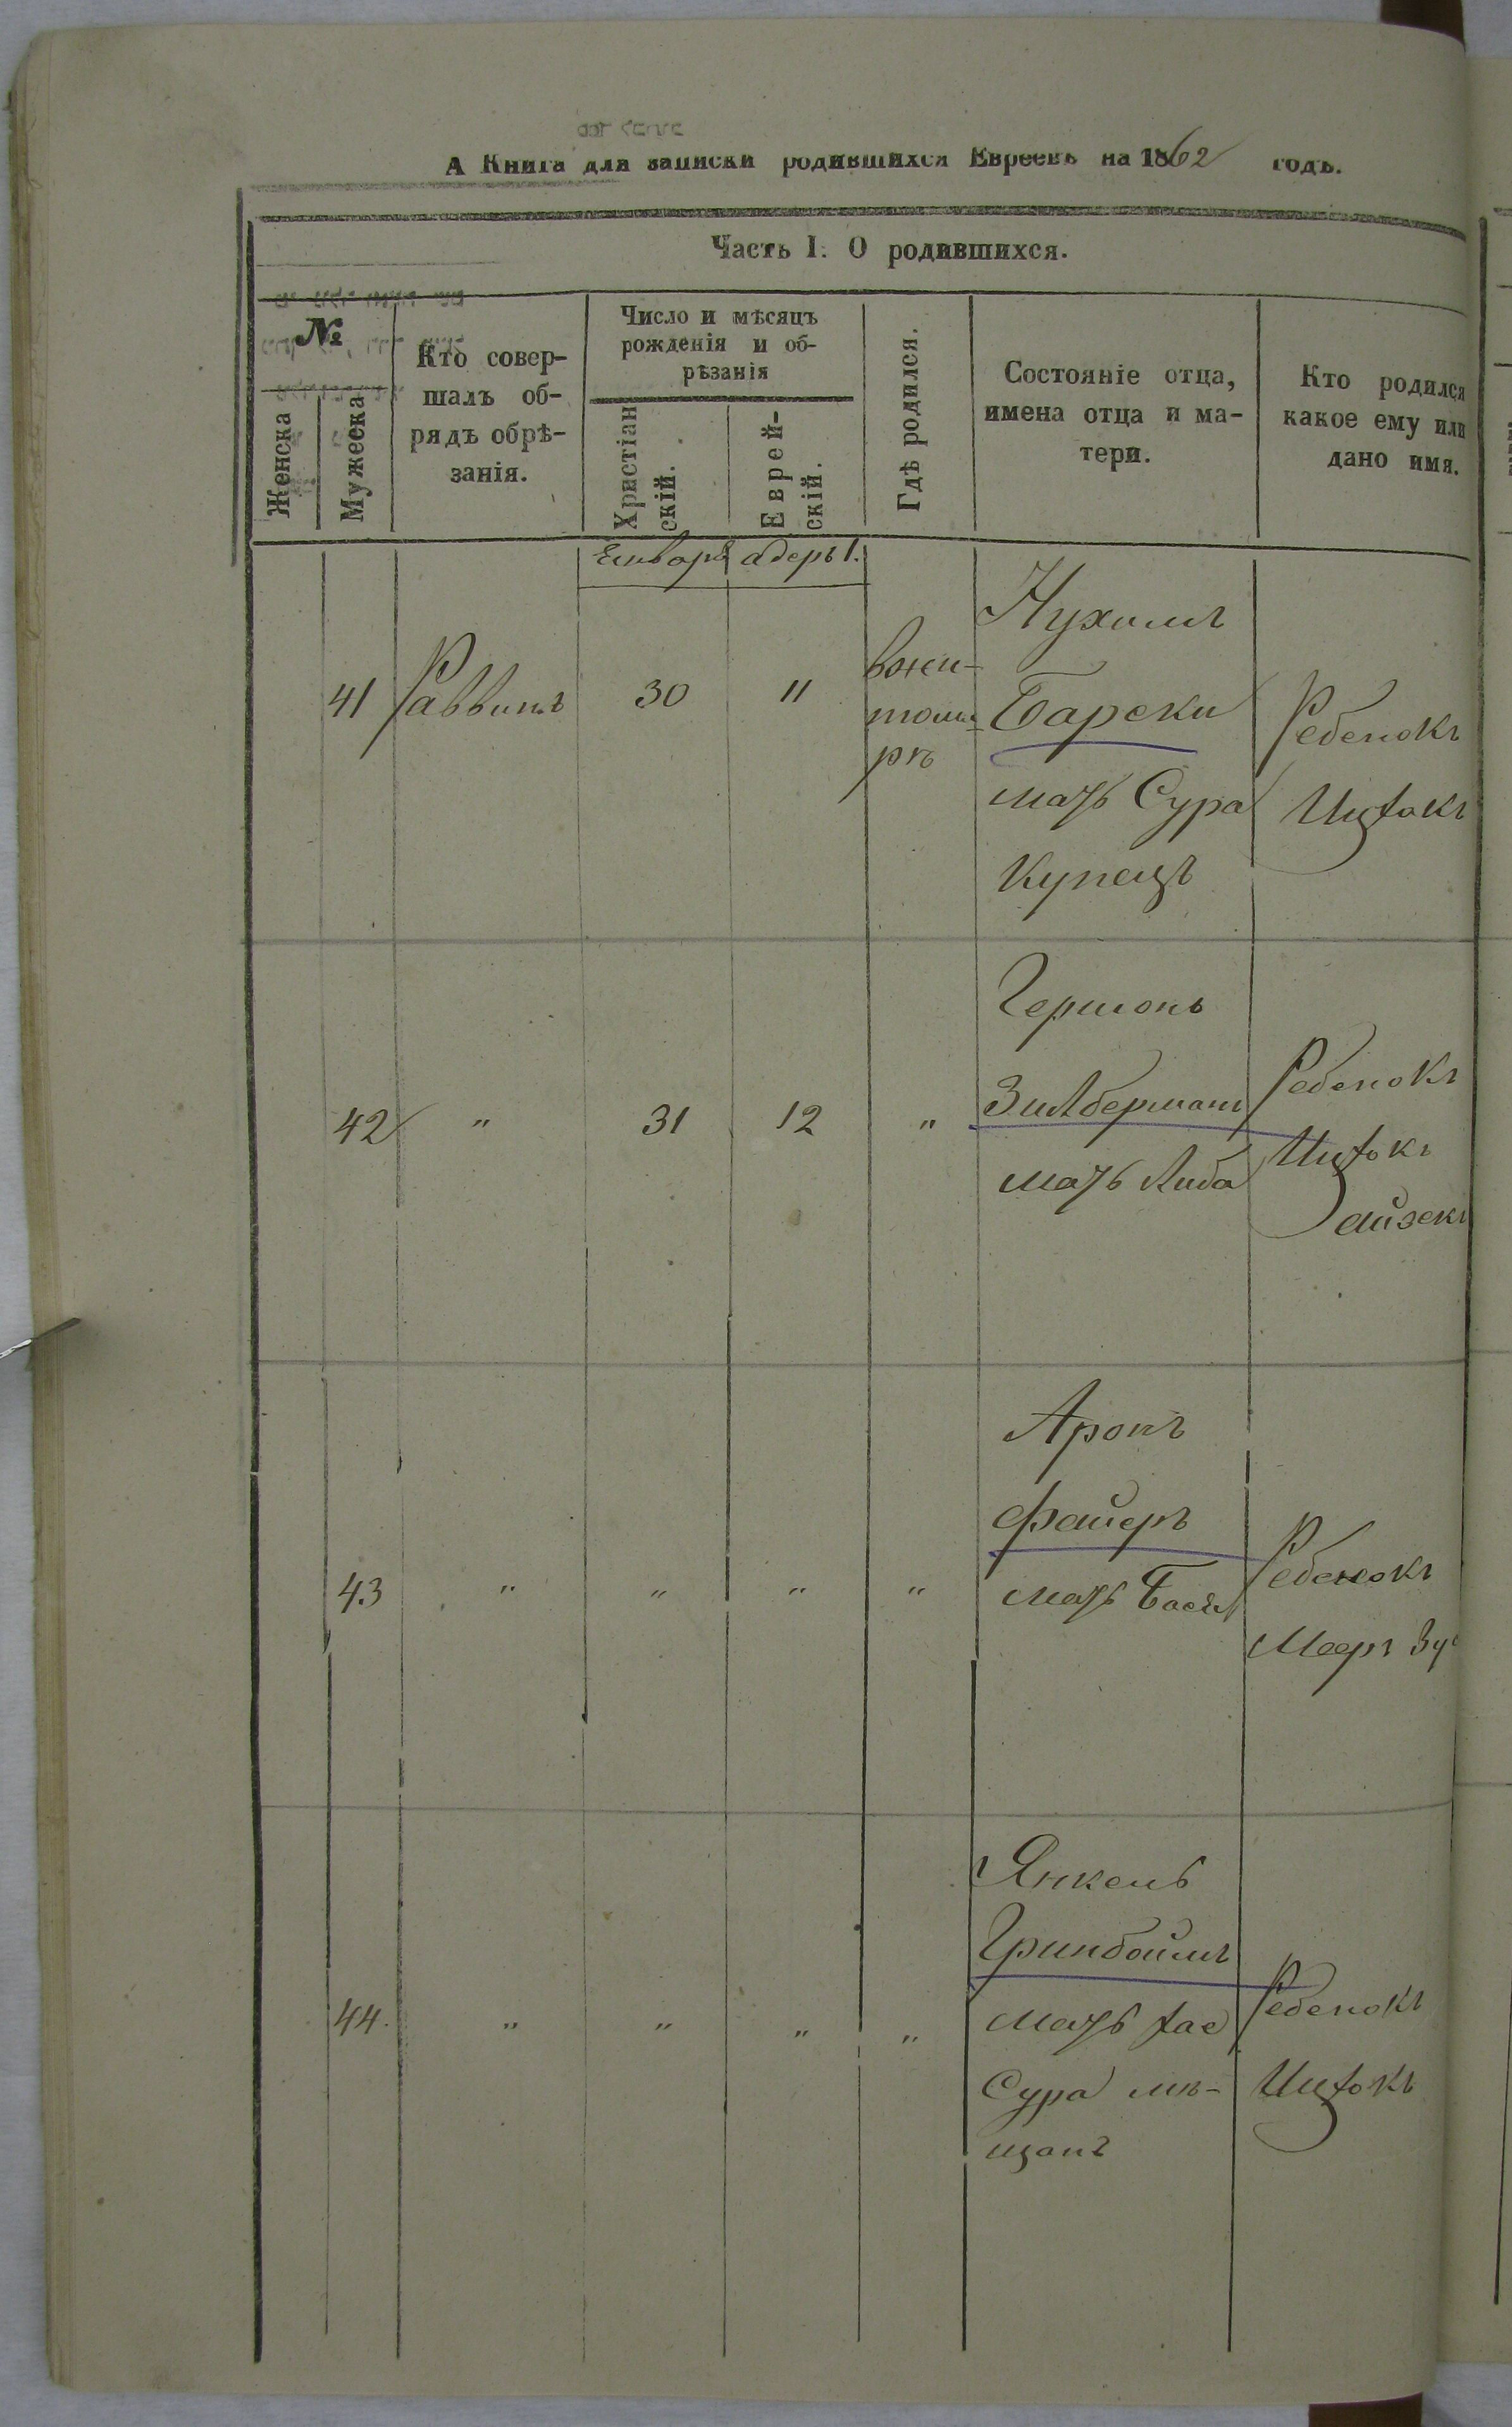 А Книга для записки родившихся Евреевъ на 1862 годъ.
Часть I. О родившихся.
№
Женска
Мужеска
Кто совер-
шалъ об-
рядъ обрѣ-
занія.
Число и мѣсяцъ
рожденія и об-
рѣзанія
Христіан
скій.
Еврей-
скій.
Гдѣ родился.
Состояніе отца,
имена отца и ма-
тери.
Кто родился
какое ему или
дано имя.
Января адеръ 1.
41 Раввинъ 30 11
вжи-
томи-
рѣ
Нухимъ
Барски
мать Сура
Купецъ
Ребенокъ
Ицхокъ
42 " 31 12 "
Гершонъ
Зилберманъ
мать Либа
Ребенокъ
Ицхокъ
айзекъ
43 " " " "
Аронъ
Фаеръ
мать Бася
Ребенокъ
Мееръ
44. " " " "
Янкель
Гринбоймъ
мать хае
Сура мѣ-
щанъ
Ребенокъ
Ицхокъ